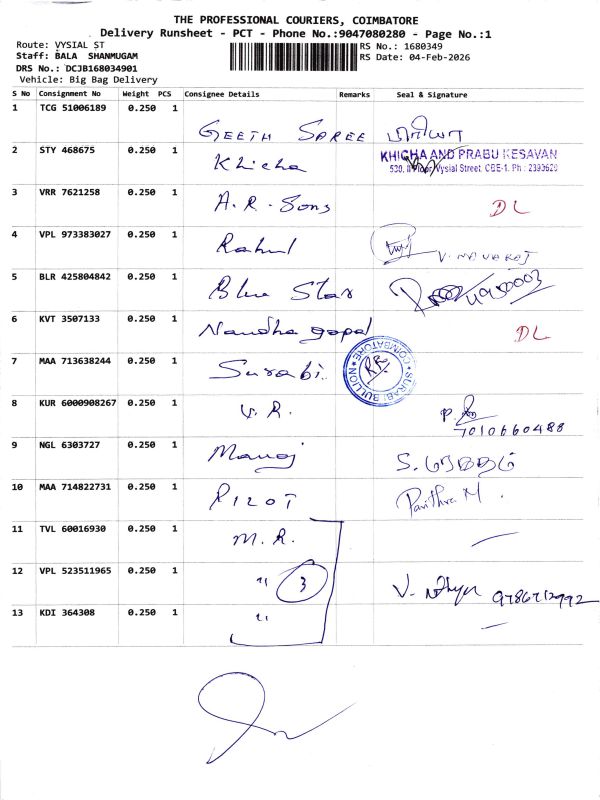 THE PROFESSIONAL COURIERS, COIMBATORE
Delivery Runsheet - PCT - Phone No.:9047080280 - Page No.:1
Route: VYSIAL ST
RS No.: 1680349
Staff: BALA SHANMUGAM
RS Date: 04-Feb-2026
DRS No.: DCJB168034901
Vehicle: Big Bag Delivery
S No Consignment No Weight PCS Consignee Details Remarks Seal & Signature
1 TCG 51006189 0.250 1 GEETH SPREE பிரியா
2 STY 468675 0.250 1 Khicha KHICHA AND PRABU KESAVAN
530, II Floor, Vysial Street, CBE-1. Ph : 2393620
3 VRR 7621258 0.250 1 A.R. Sons DL
4 VPL 973383027 0.250 1 Rahul V. NAVARAJ
5 BLR 425804842 0.250 1 Blue Star
6 KVT 3507133 0.250 1 Nandha gopal DL
7 MAA 713638244 0.250 1 Surabi. SURABI BULLION COIMBATORE
8 KUR 6000908267 0.250 1 V.R. 7010660488
9 NGL 6303727 0.250 1 Manoj S.
10 MAA 714822731 0.250 1 PILOT Pavithra M.
11 TVL 60016930 0.250 1 M.R. —
12 VPL 523511965 0.250 1 " 3 V. Nithya 9786712992
13 KDI 364308 0.250 1 " —